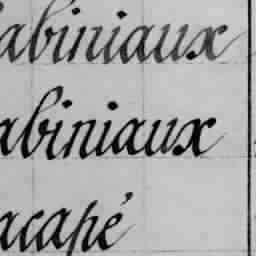 abiniaux
abiniaux
acapé